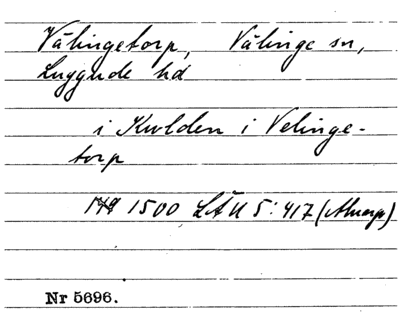 Välingetorp, Välinge sn,
Luggude hd
i Kwlden i Velinge-
torp
1500 LÄU 5:417 (Alnarp)
Nr 5696.